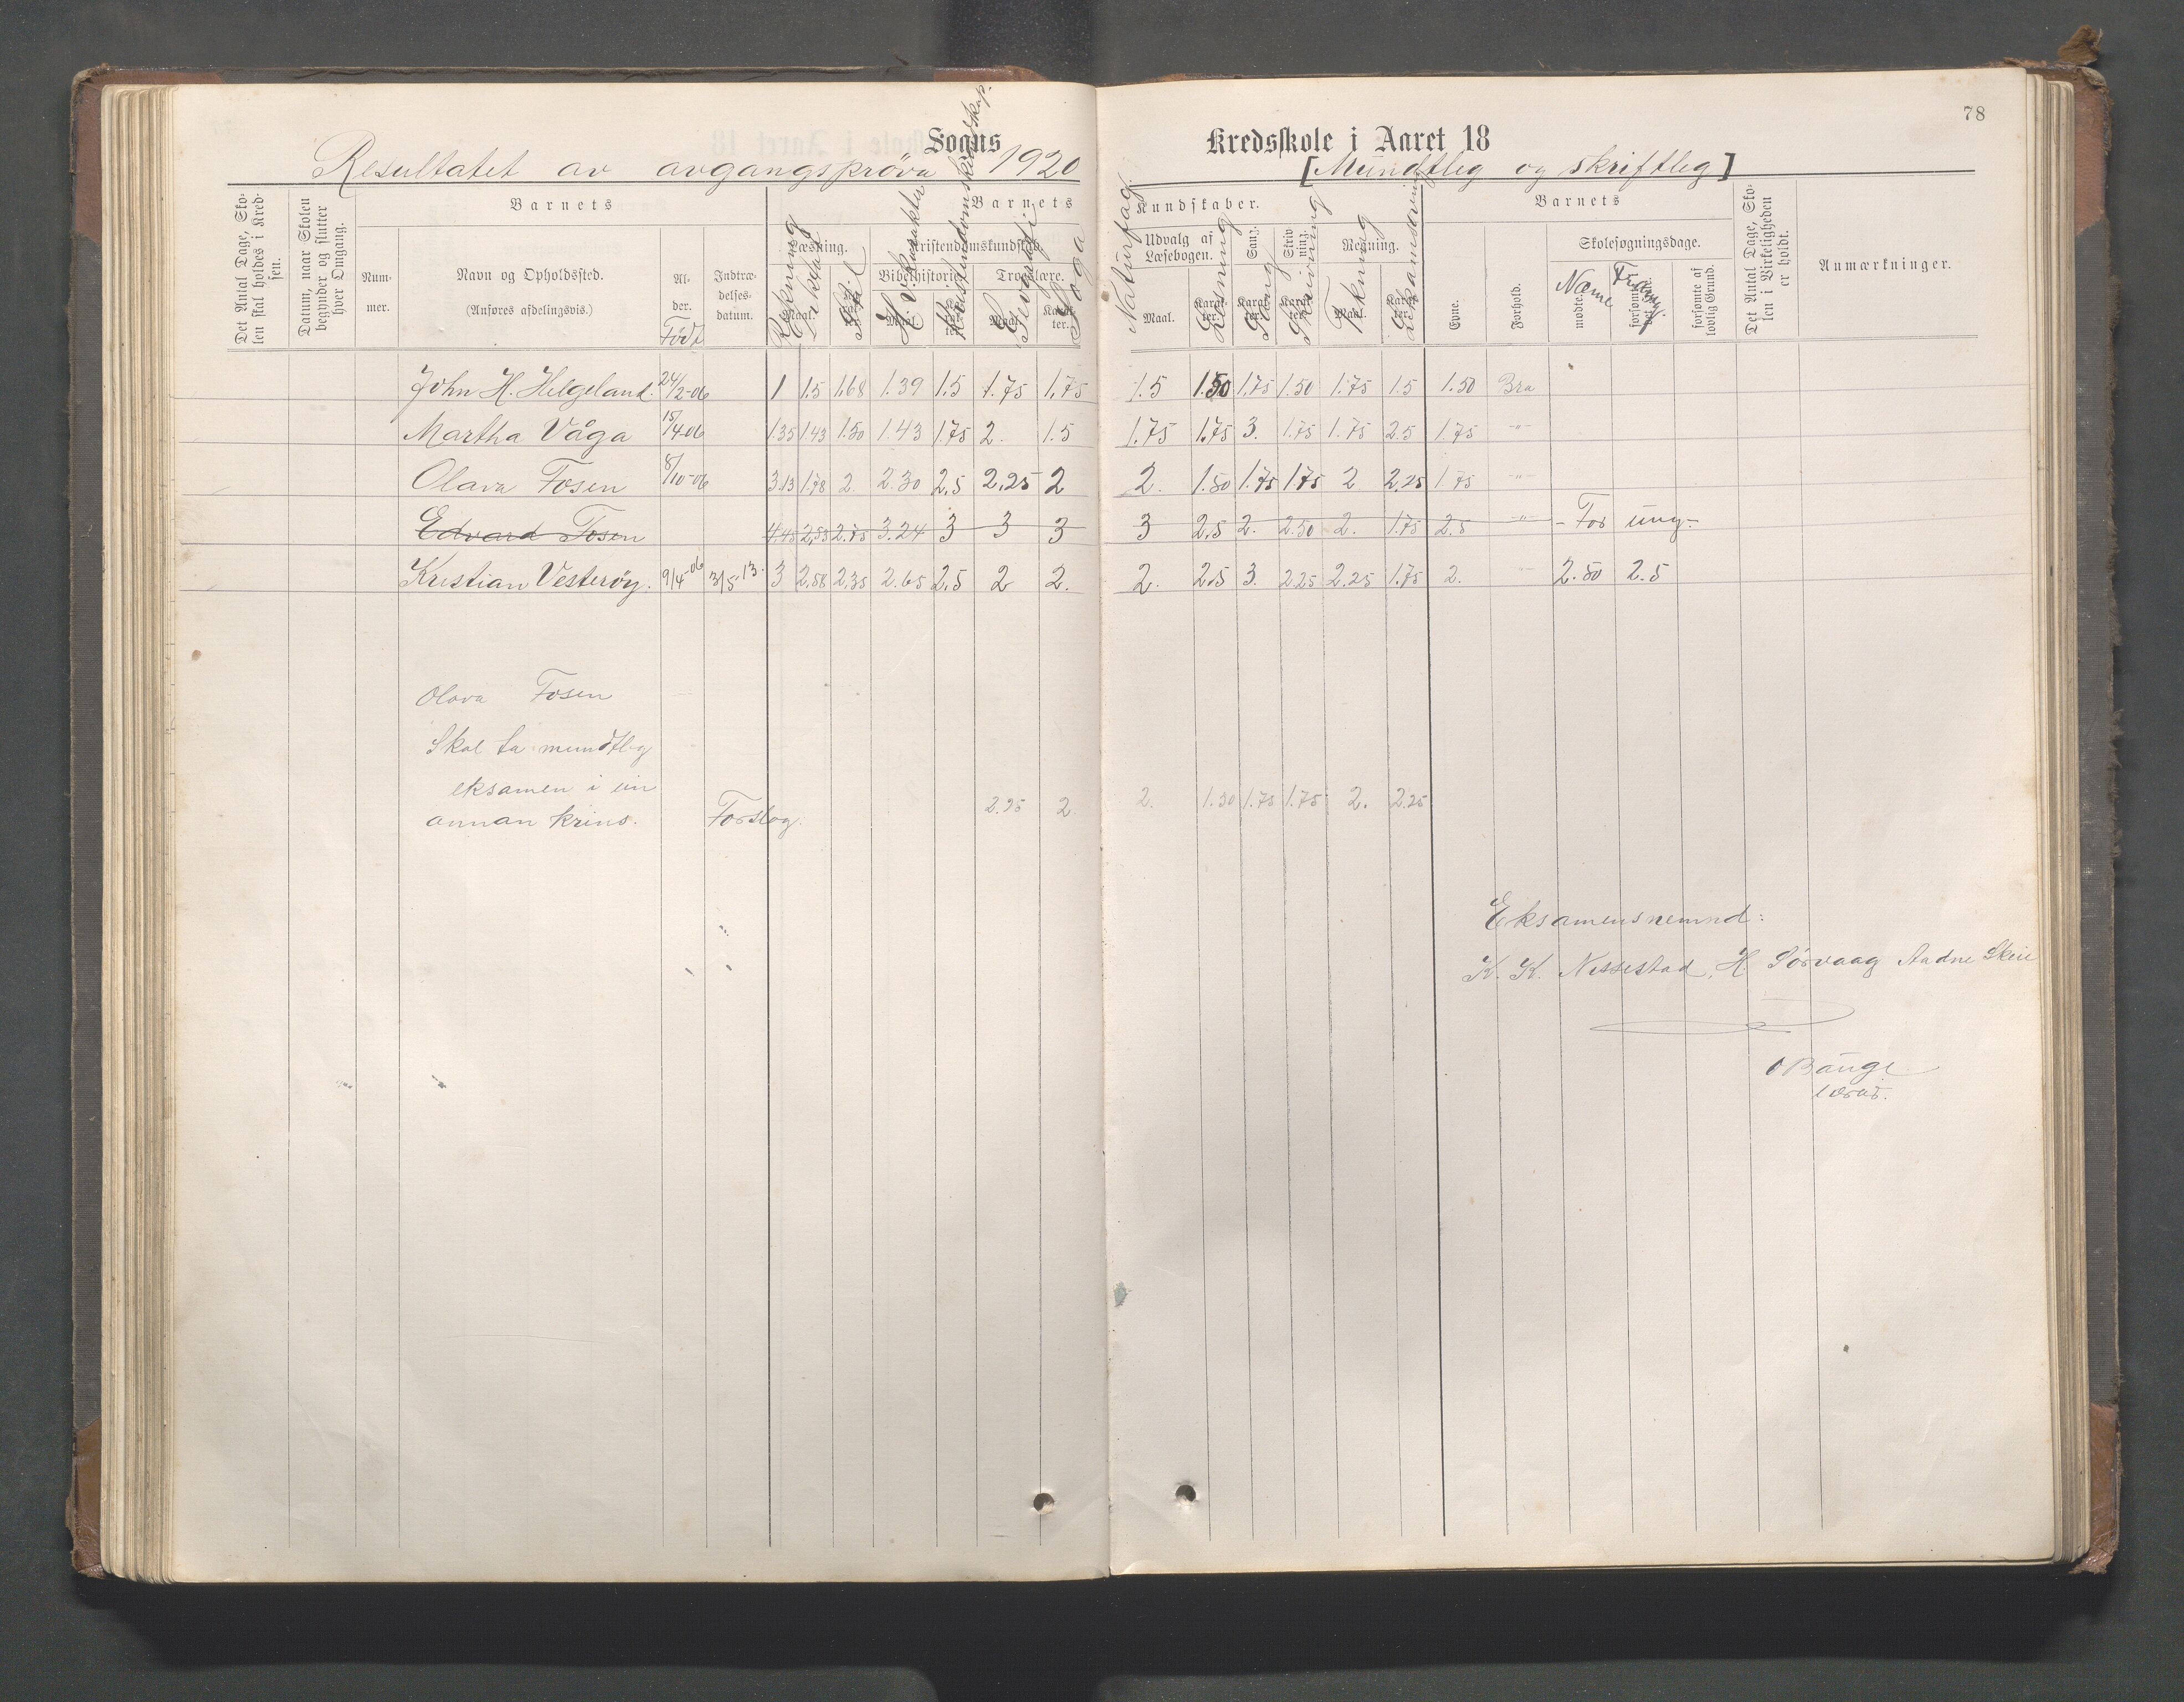 78
Sogns Kredsskole i Aaret 18
Resultatet av avgangspröva 1920 [Mundtleg og skriftleg]
Det Antal Dage, Skolen skal holdes i Kredsen.
Datum, naar Skolen begynder og slutter hver Omgang.
Barnets
Barnets
Kundskaber.
Barnets
Det Antal Dage, Skolen i Virkeligheden er holdt.
Anmærkninger.
Nummer.
Navn og Opholdssted.
(Anføres afdelingsvis.)
Alder.
Född
Indtrædelsesdatum.
Læsning.
Kristendomskundskab.
Bibelhistorie.
Troeslære.
Udvalg af Læsebogen.
Sang.
Skrivning.
Regning.
Evne.
Forhold.
Skolesøgningsdage.
mødte.
forsømte i det hele.
forsømte af lovlig Grund.
Maal. Karakter.
Rekning
Diktat
Stil
H. Karakter
Kristendomskundskap.
Soga
Naturfag.
Lesning
Sang
Skrivning
Tekning
Likamsövning
Næme
Framf.
John H. Helgeland. 24/2-06 1 1.5 1.68 1.39 1.5 1.75 1.75 1.5 1.50 1.75 1.50 1.75 1.5 1.50 Bra
Martha Våga 15/4-06 1.35 1.43 1.50 1.43 1.75 2. 1.5 1.75 1.75 3. 1.75 1.75 2.5 1.75 -"-
Olava Fosen 8/10-06 3.13 1.78 2. 2.30 2.5 2.25 2 2. 1.50 1.75 1.75 2 2.25 1.75 -"-
Edvard Fosen 4.45 2.53 2.75 3.24 3 3 3 3 2.5 2. 2.50 2. 1.75 2.5 -"- - For ung -
Kristian Vesteröy. 9/4-06 3/5-13. 3 2.58 2.35 2.65 2.5 2 2. 2. 2.5 3. 2.25 2.25 1.75 2. -"- 2.50 2.5
Olava Fosen
Skal ta mundtleg
eksamen i ein
annan krins. Forslag. 2.25 2 2. 1.50 1.75 1.75 2. 2.25
Eksamensnemnd:
K. K. Nessestad, H. Sörvaag Aadne Skeie
O Bauge